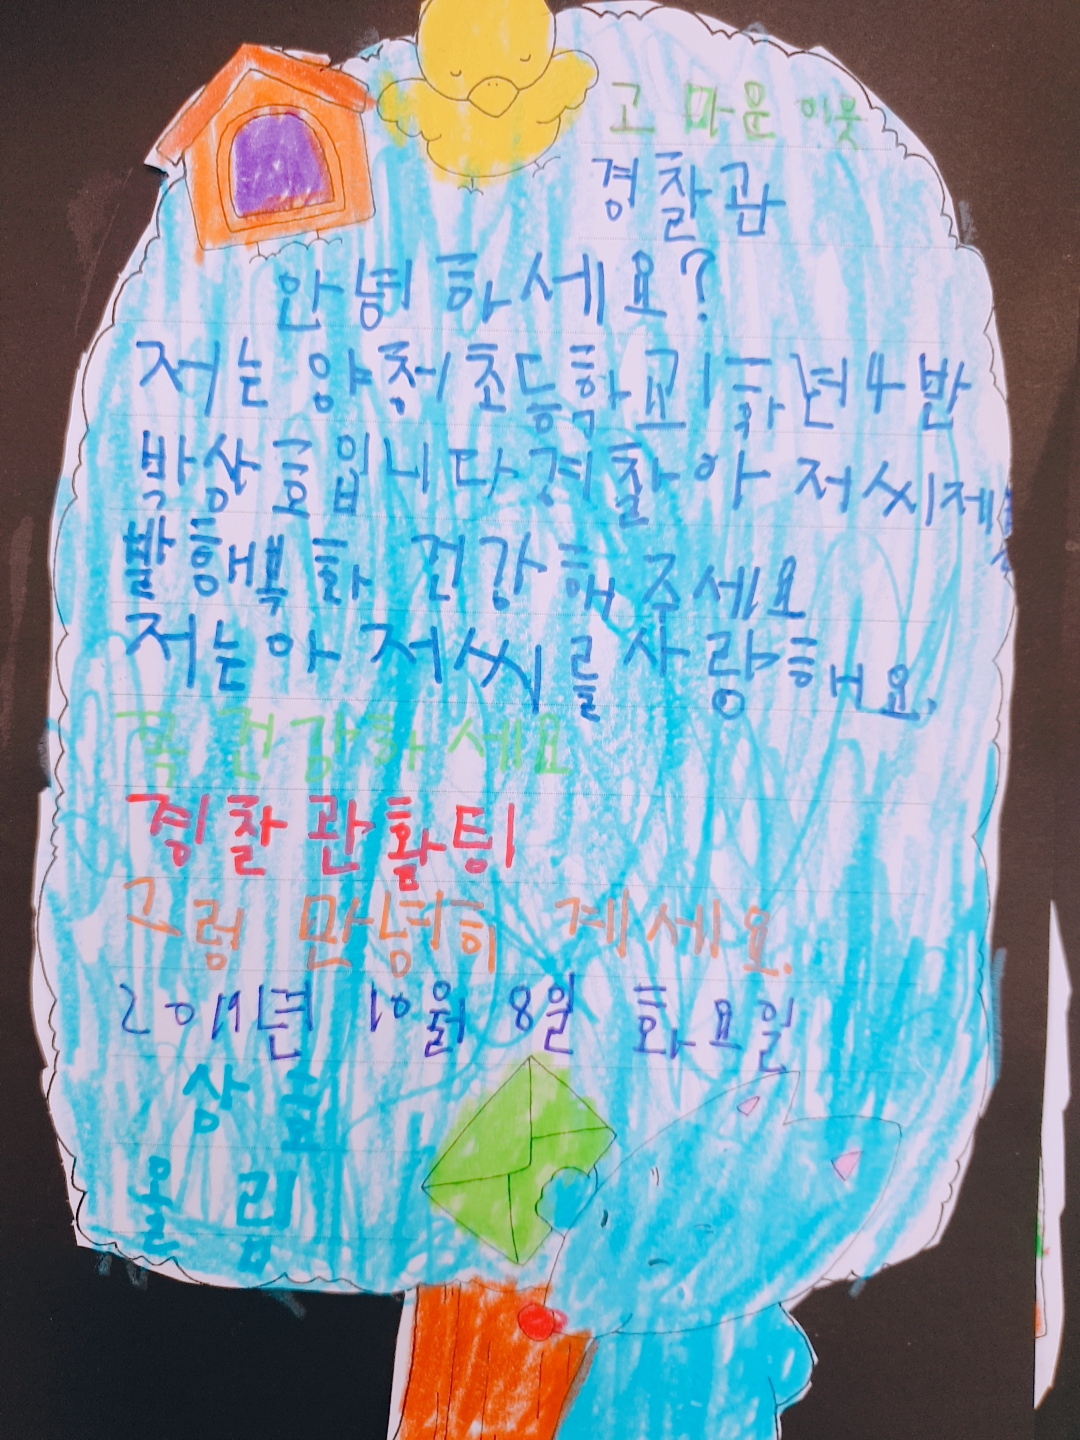 고마운 이웃
경찰관
안녕하세요?
저는 양청초등학교 1학년 4반
박상호입니다 경찰아저씨 제
발 행복화 건강해 주세요
저는 아저씨를 사랑해요.
꼭 건강하세요
경찰관 홧팅
그럼 안녕히 계세요.
2019년 10월 8일 화요일
상호
올림